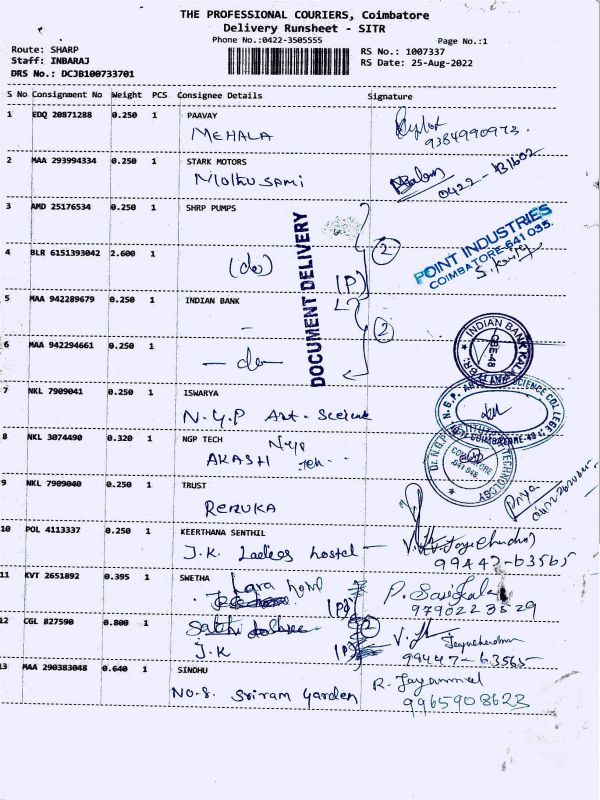 THE PROFESSIONAL COURIERS, Coimbatore
Delivery Runsheet - SITR
Phone No.:0422-3505555
Page No.:1
Route: SHARP
Staff: INBARAJ
DRS No.: DCJB100733701
RS No.: 1007337
RS Date: 25-Aug-2022
S No Consignment No Weight PCS Consignee Details Signature
1 EDQ 20871288 0.250 1 PAAVAY
MEHALA
9384990973.
2 MAA 293994334 0.250 1 STARK MOTORS
0422 - 431602
3 AMD 25176534 0.250 1 SHRP PUMPS
DOCUMENT DELIVERY
2
POINT INDUSTRIES
COIMBATORE-641 035.
4 BLR 6151393042 2.600 1
(do)
(P)
5 MAA 942289679 0.250 1 INDIAN BANK
2
INDIAN BANK
6 MAA 942294661 0.250 1
- do -
7 NKL 7909041 0.250 1 ISWARYA
N.G.P Art - Science
N.G.P. ARTS AND SCIENCE COLLEGE
COIMBATORE-48
8 NKL 3074490 0.320 1 NGP TECH
AKASH
Dr. N.G.P. INSTITUTE OF TECHNOLOGY
COIMBATORE
641 048
9 NKL 7909040 0.250 1 TRUST
RENUKA
Priya
10 POL 4113337 0.250 1 KEERTHANA SENTHIL
J.K. Ladies hostel -
99447-63565
11 KVT 2651892 0.395 1 SWETHA
Lara
P. Sasikala
9790223529
12 CGL 827590 0.800 1
J.K
2
99447-63565
13 MAA 290383048 0.640 1 SINDHU
NO.8. Sriram Garden
R. Jayammal
9965908623